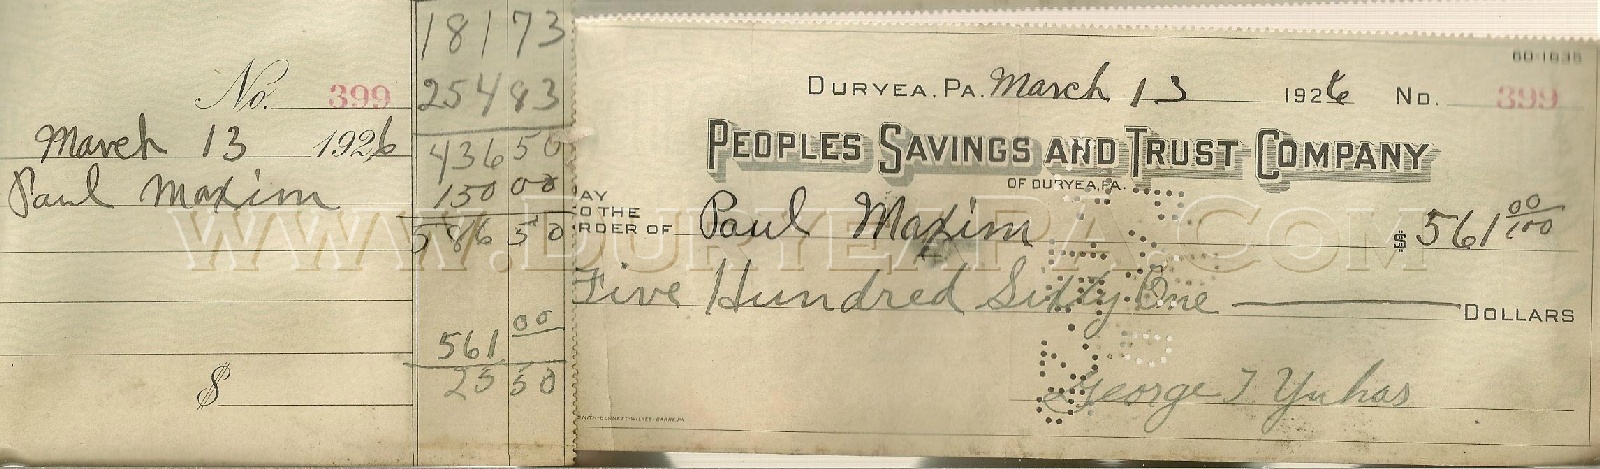 No. 399
March 13 1926
Paul Maxim
$
181 73
254 83
436 50
150 00
586 50
561 00
25 50
60-1635
DURYEA, PA. March 13 1926 No. 399
PEOPLES SAVINGS AND TRUST COMPANY
OF DURYEA, PA.
AY
O THE
RDER OF Paul Maxim $ 561 00/100
Five Hundred Sixty One DOLLARS
George T Yuhas
WWW.DURYEAPA.COM